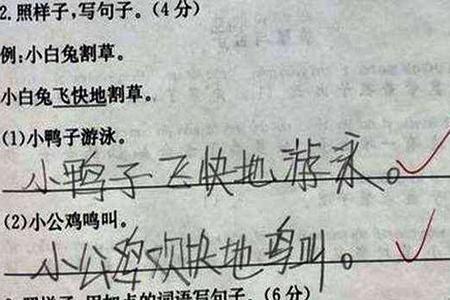 2.照样子,写句子。(4分)
例:小白兔割草。
小白兔飞快地割草。
(1)小鸭子游泳。
小鸭子飞快地游泳。
(2)小公鸡鸣叫。
小公鸡欢快地鸣叫。
照样子,用加点的词语写句子。(6分)